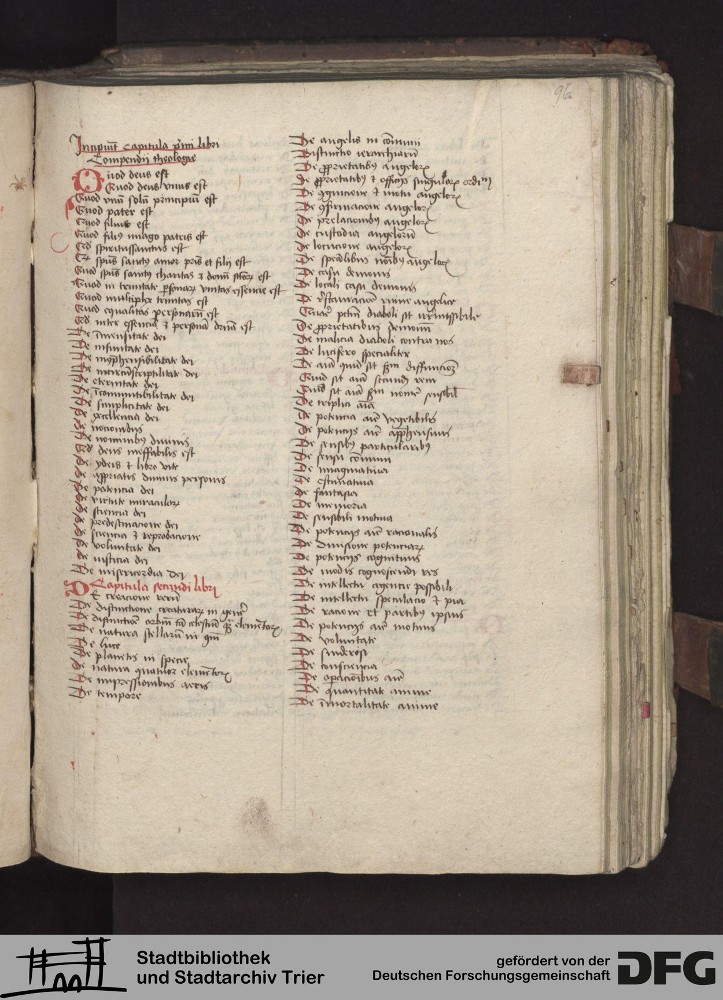 96
Incipiūt Capitula pͥmi libri
Compendii theologie
Quod deus est
Quod deus vnus est
Quod vnū solū principiū est
Quod pater est
Quod filius est
Quod filiꝰ imago patris est
Qd spiritussanctus est
spūs sanctꝰ amor pris et filij est
Quod spūs sanctꝰ charitas et donū est
Quod in trinitate vnitas essencie est
Quod multiplex trinitas est
Quod equalitas personarū est
Qd inter essenciā et personā est
De īmensitate dei
De infinitate dei
De incōphensibilitate dei
De incircūscriptilitate dei
De eternitate dei
De īcommutabilitate dei
De simplicitate dei
De excellencia dei
De nocionibus
De nominibꝰ diuinis
Qd deus ineffabilis est
De ydeis et libro vite
De appriatis diuinis personis
De potencia dei
De virtute miraculoꝝ
De sciencia dei
De predestinacione dei
De sciencia et reprobacione
De voluntate dei
De iusticia dei
De misericordia dei
Capitula secundi libri
De creacione rerū
De distinctione creaturaꝝ in genere
De distinctiōe orbiū celestiū elementoꝝ
De natura stellarū in
De luce
De planetis in specie
De natura quatuor elementoꝝ
De impressionibus aeris
De tempore
De angelis in cōmuni
Distinctio ierarchiarū
De ꝓprietatibꝰ angeloꝝ
De ꝓprietatibꝰ et officijs singuloꝝ ordinū
De cognicione et motu angeloꝝ
De ꝯfirmacione angeloꝝ
De prelacionibꝰ angeloꝝ
De custodia angeloꝝ
De locucione angeloꝝ
De specialibus noībꝰ angeloꝝ
De casu demonis
De locali casu demonis
De restauracione ruine angelice
Quare pctm diaboli sit irremissibile
De ꝓprietatibus demonū
De malicia diaboli contra nos
De lucifero specialiter
De aīa quid sit scdm diffinicōes
Quid sit aīa secundū rem
Quid sit aīa scdm nomē
De triplici aīa
De potencia aīe vegetabilis
De potencijs aīe apphensiuis
De sensibꝰ particularibꝰ
De sensu cōmuni
De imaginatiua
De estimatiua
De fantasia
De memoria
De sensibili motiua
De potencijs aīe racionalis
De diuisione potenciarꝝ
De potencijs cognitiuis
De modis cognoscendi res
De intellectu agente et possibili
De intellectu speculatiuo et
De racione et partibꝰ ipsius
De potencijs aīe motiuis
De voluntate
De sinderesi
De consciencia
De opacōibus aīe
De quantitate anime
De īmortalitate anime
Stadtbibliothek
und Stadtarchiv Trier
gefördert von der
Deutschen Forschungsgemeinschaft
DFG